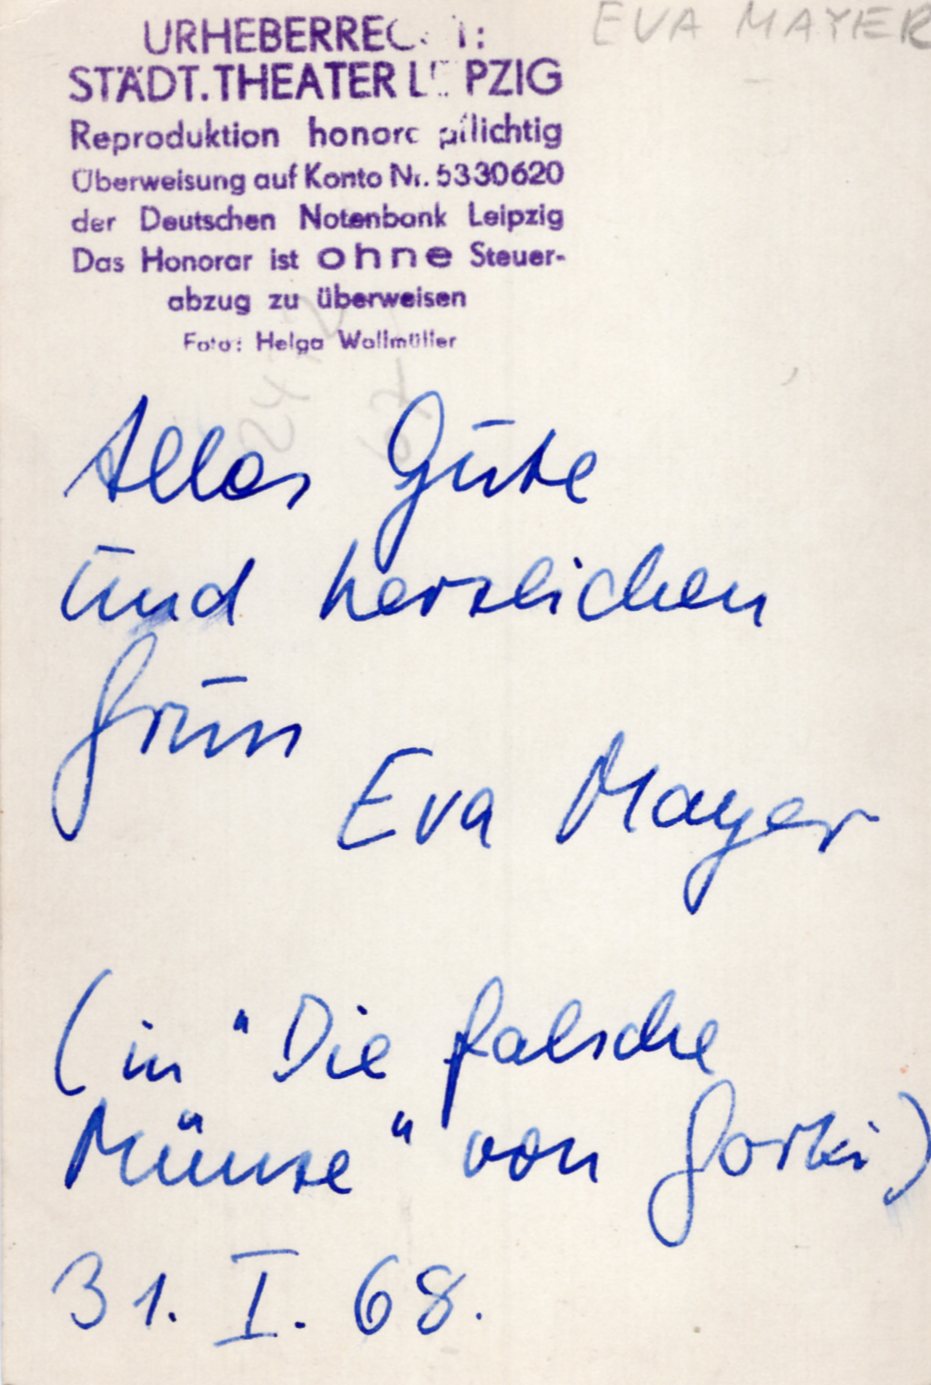 EVA MAYER
URHEBERRECHT:
STÄDT. THEATER LEIPZIG
Reproduktion honorarpflichtig
Überweisung auf Konto Nr. 5330620
der Deutschen Notenbank Leipzig
Das Honorar ist ohne Steuer-
abzug zu überweisen
Foto: Helga Wallmüller
Alles Gute
und herzlichen
Gruss
Eva Mayer
(in "Die falsche
Münze" von Gorki)
31. I. 68.